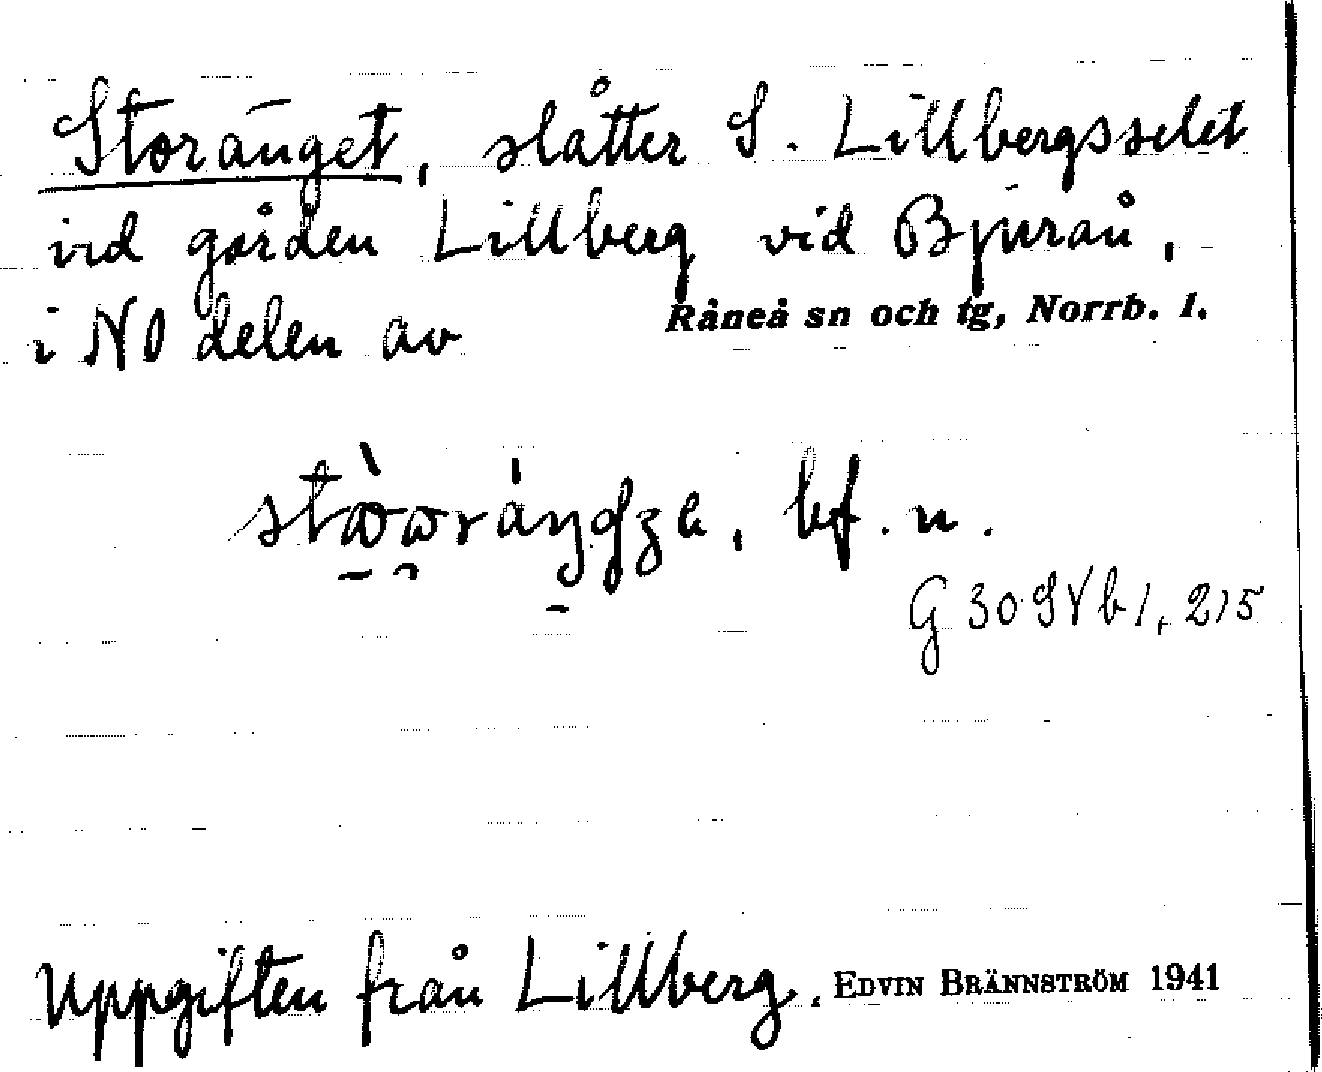 Storänget, slåtter S. Lillbergsselet
vid gården Lillberg vid Bjurån,
i NO delen av Råneå sn och tg, Norrb. l.
bf. n.
G 30 SV b 1, 215
Uppgiften från Lillberg. EDVIN BRÄNNSTRÖM 1941